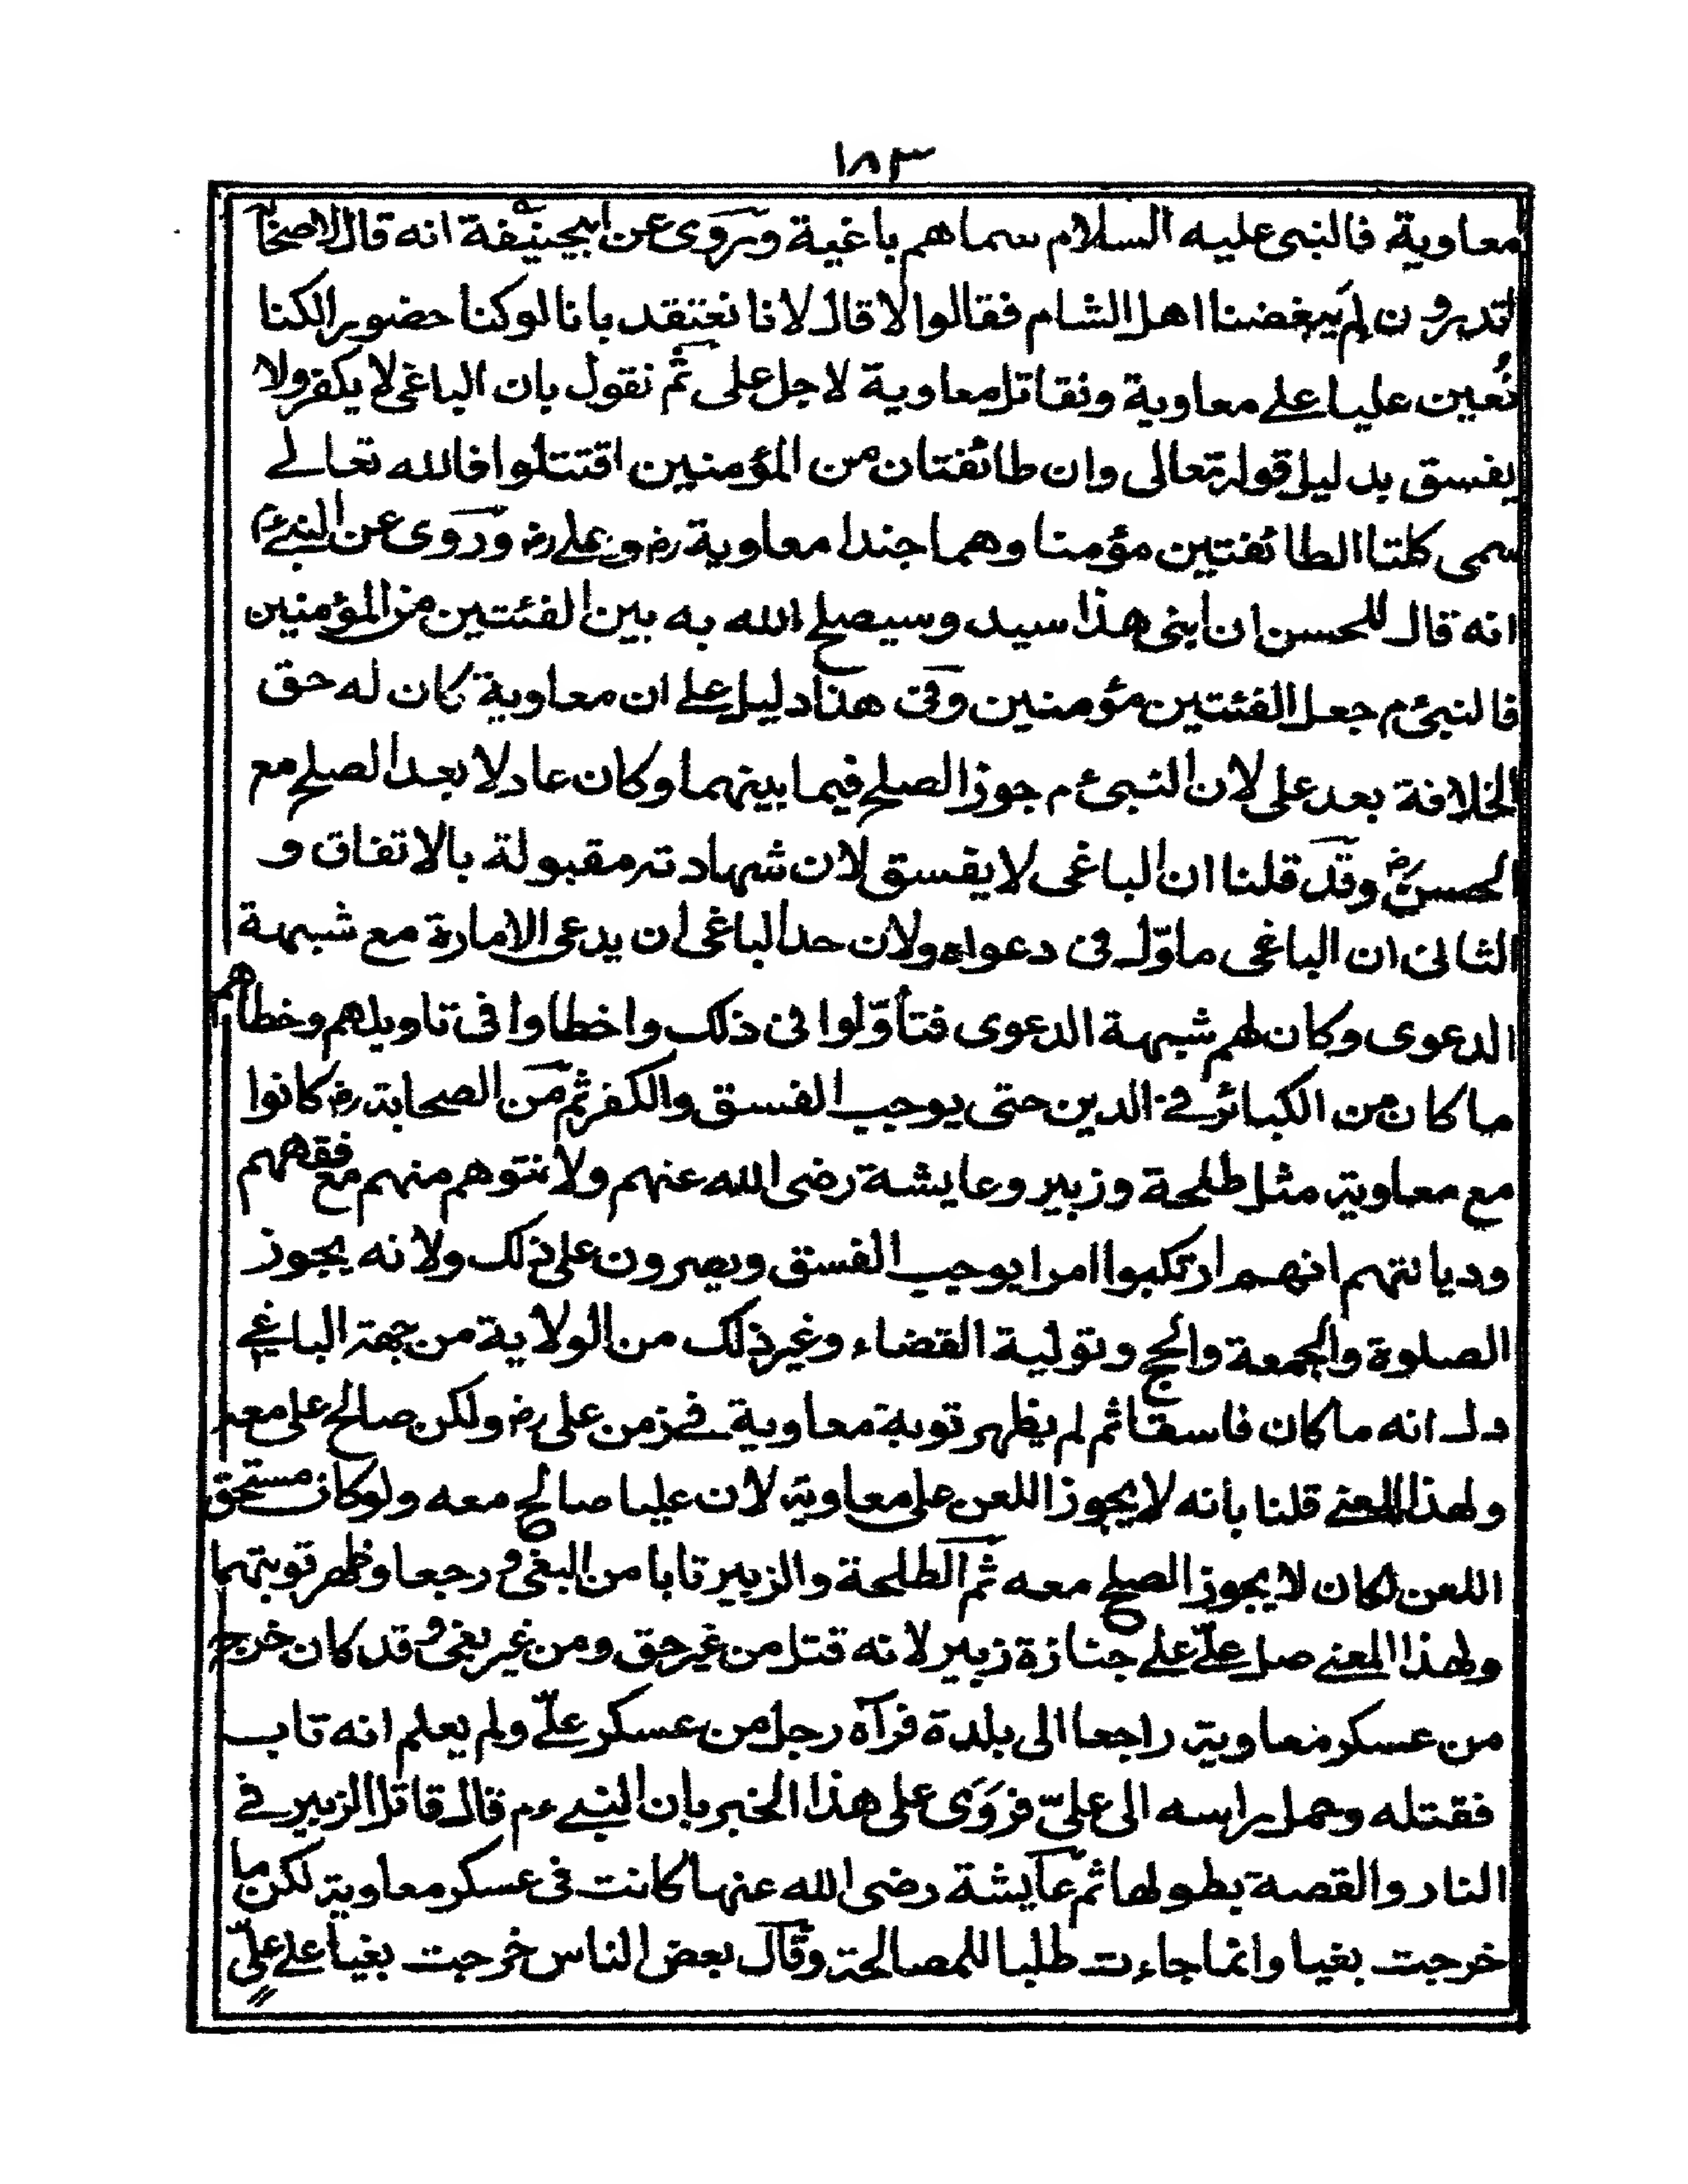 ١٨٣
معاوية فالنبى عليه السلام سماهم باغية وروى عن ابيحنيفة انه قال لاصحابه
اتدرون لم يبغضنا اهل الشام فقالوا لا قال لانا نعتقد بانا لو كنا حضورا لكنا
نُعين عليا على معاوية ونقاتل معاوية لاجل على ثم نقول بان الباغى لا يكفر ولا
يفسق بدليل قوله تعالى وان طائفتان من المؤمنين اقتتلوا فالله تعالے
سمى كلتا الطائفتين مؤمنا وهما جندا معاوية رض وعلى رض وروى عن النبى ءم
انه قال للحسن ان ابنى هذا سيد وسيصلح الله به بين الفئتين من المؤمنين
فالنبى ءم جعل الفئتين مؤمنين وفى هذا دليل على ان معاوية كان له حق
الخلافة بعد على لان النبى ءم جوز الصلح فيما بينهما وكان عادلا بعد الصلح مع
الحسن رض وقد قلنا ان الباغى لا يفسق لان شهادته مقبولة بالاتفاق و
الثانى ان الباغى ماوّل فى دعواه ولان حد الباغى ان يدعى الامارة مع شبهة
الدعوى وكان لهم شبهة الدعوى فتأوّلوا فى ذلك واخطاوا فى تاويلهم وخطأهم
ما كان من الكبائر فى الدين حتى يوجب الفسق والكفر ثم من الصحابة رض كانوا
مع معاوية مثل طلحة وزبير وعايشة رضى الله عنهم ولا نتوهم منهم مع فقههم
وديانتهم انهم ارتكبوا امرا يوجب الفسق ويصرون على ذلك ولانه يجوز
الصلوة والجمعة والحج وتولية القضاء وغير ذلك من الولاية من جهة الباغى
دل انه ما كان فاسقا ثم لم يظهر توبة معاوية فى زمن على رض ولكن صالح على معه
ولهذا المعنى قلنا بأنه لا يجوز اللعن على معاوية لان عليا صالح معه ولو كان مستحق
اللعن لكان لا يجوز الصلح معه ثم الطلحة والزبير تابا من البغى ورجعا وظهر توبتهما
ولهذا المعنى صل علىّ على جنازة زبير لانه قتل من غير حق ومن غير بغى وقد كان خرج
من عسكر معاوية راجعا الى بلدة فرآه رجل من عسكر علىّ ولم يعلم انه تاب
فقتله وحمل براسه الى علىّ فروى على هذا الخبر بان النبى ءم قال قاتل الزبير فى
النار والقصة بطولها ثم عايشة رضى الله عنها كانت فى عسكر معاوية لكن ما
خرجت بغيا وانما جاءت طلبا للمصالحة وقال بعض الناس خرجت بغيا على علىّ